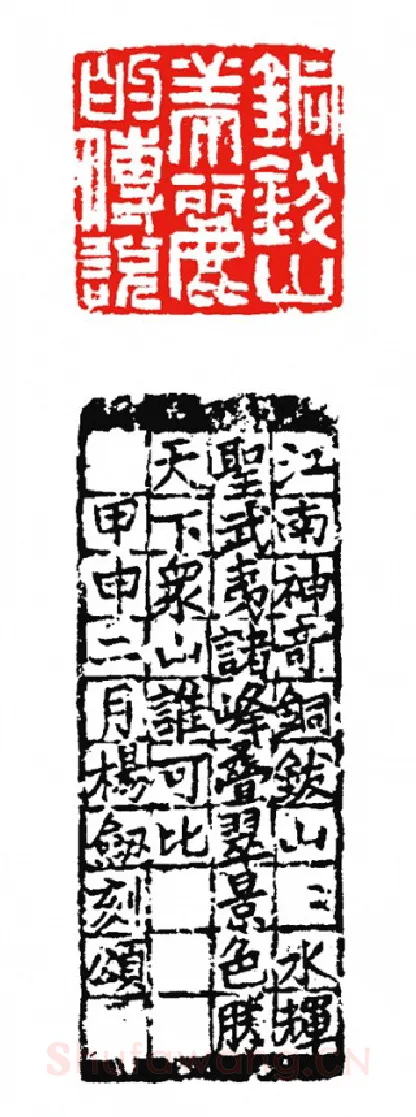 銅鈸山
美麗
的傳說
江南神奇銅鈸山〻水輝
聖武夷諸峰叠翠景色勝
天下衆山誰可比
甲申二月楊劒刻頌
Shufawang.CN